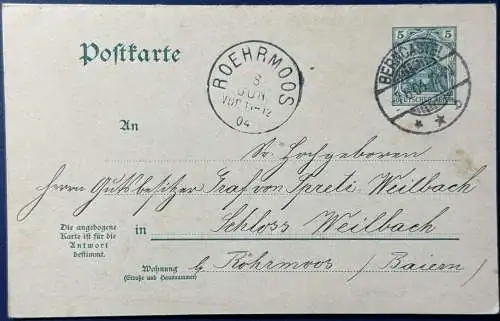 Postkarte
ROEHRMOOS
8
JUN
VOR 11-12
04
5
5
BERNCASTEL
DEUTSCHES REICH
An
Sr. Hochgeboren
Herrn Gutsbesitzer Graf von Spreti-Weilbach
Die angebogene
Karte ist für die
Antwort
bestimmt.
in Schloss Weilbach
Wohnung
(Straße und Hausnummer)
b/ Röhrmoos / Baiern /